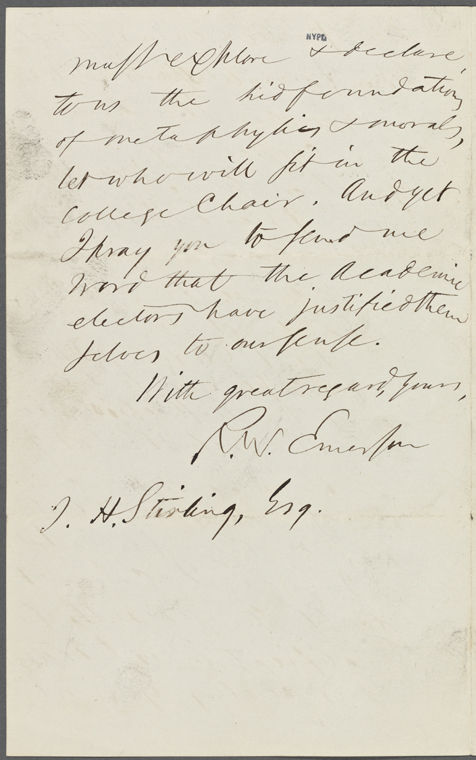 NYPL
must explore & declare,
to us the hid foundations
of metaphysics & morals,
let who will sit in the
College Chair. And yet
I pray you to send me
word that the Academic
electors have justified them
selves to our sense.
With great regard, yours,
R. W. Emerson
J. H. Stirling, Esq.